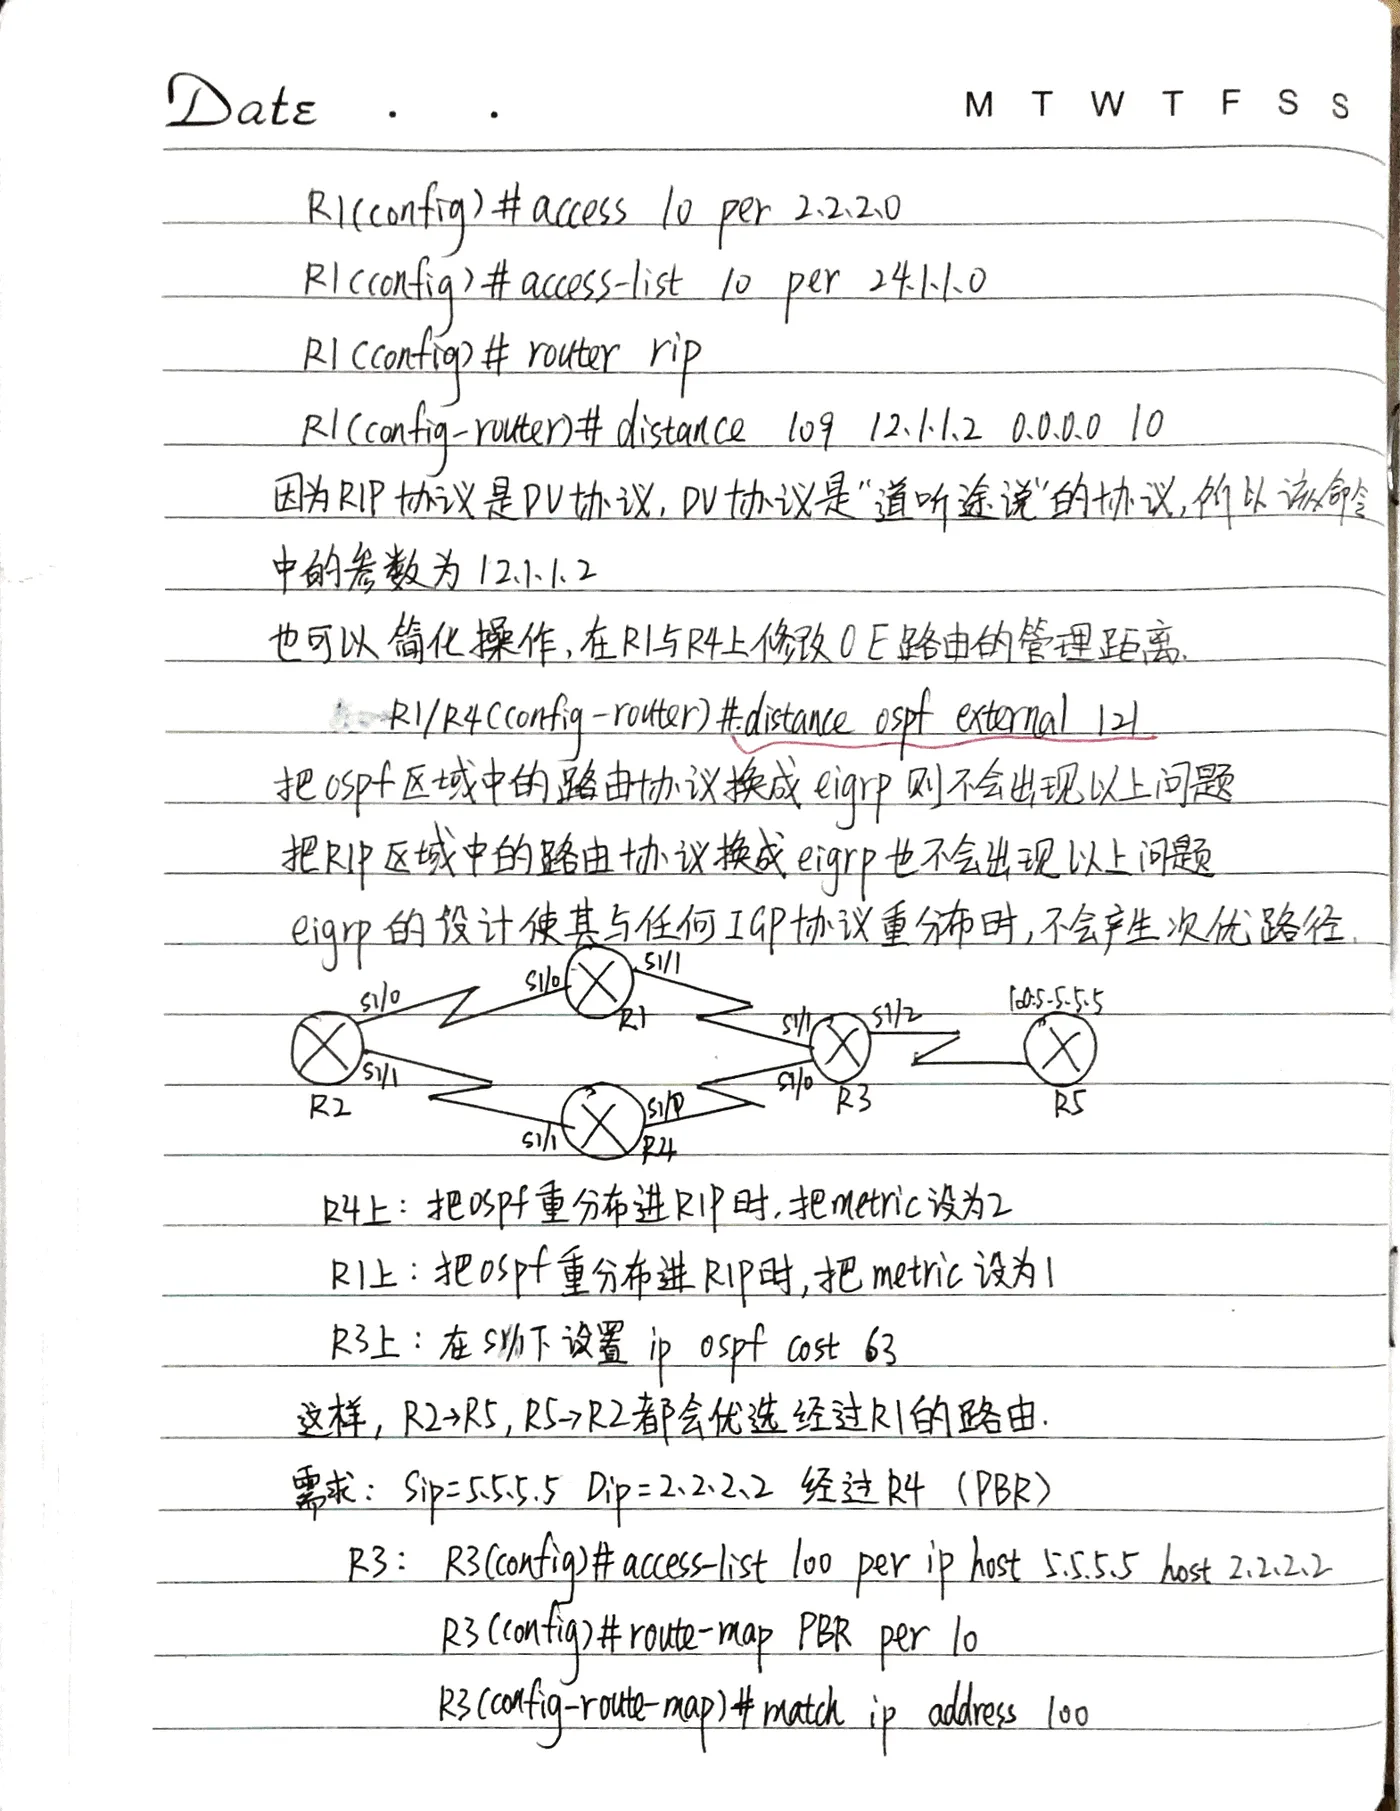 Date . .
M T W T F S S
R1(config)#access 10 per 2.2.2.0
R1(config)#access-list 10 per 24.1.1.0
R1(config)# router rip
R1(config-router)# distance 109 12.1.1.2 0.0.0.0 10
因为RIP协议是DV协议,DV协议是"道听途说"的协议,所以该命令
中的参数为12.1.1.2
也可以简化操作,在R1与R4上修改O E路由的管理距离.
R1/R4(config-router)#distance ospf external 121
把ospf区域中的路由协议换成eigrp则不会出现以上问题
把RIP区域中的路由协议换成eigrp也不会出现以上问题
eigrp的设计使其与任何IGP协议重分布时,不会产生次优路径.
S1/0 S1/0 R1 S1/1
R2 S1/1 S1/1 R4 S1/0
S1/1 S1/0 R3 S1/2
lo0:5.5.5.5 R5
R4上:把ospf重分布进RIP时,把metric设为2
R1上:把ospf重分布进RIP时,把metric设为1
R3上:在S1/1下设置 ip ospf cost 63
这样,R2→R5,R5→R2都会优选经过R1的路由.
需求:Sip=5.5.5.5 Dip=2.2.2.2 经过R4 (PBR)
R3: R3(config)#access-list 100 per ip host 5.5.5.5 host 2.2.2.2
R3(config)#route-map PBR per 10
R3(config-route-map)#match ip address 100